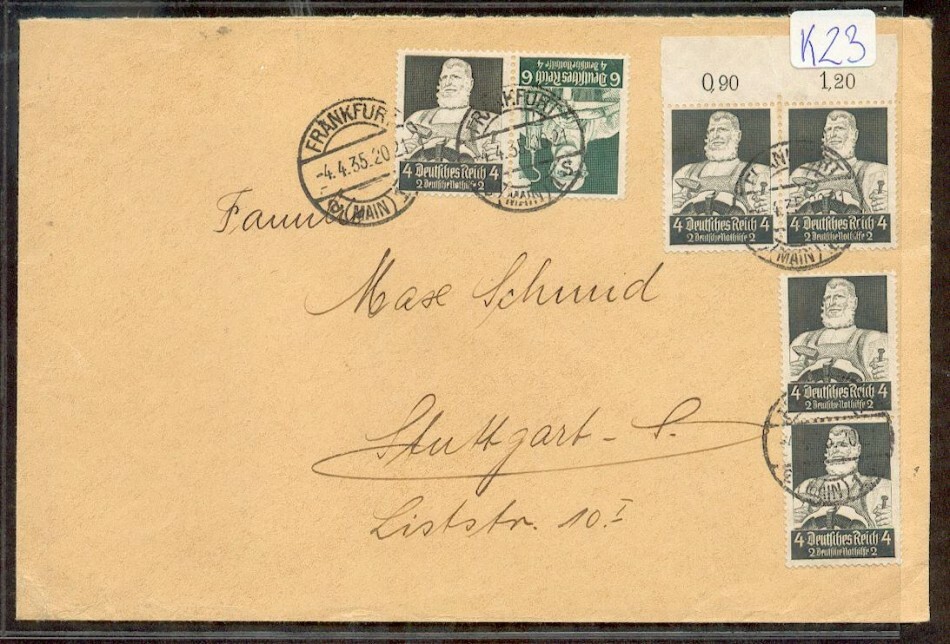 K23
0,90 1,20
FRANKFURT
-4.4.35.20
(MAIN) 1
4 Deutsches Reich 4
2 Deutsche Nothilfe 2
6 Deutsches Reich 6
4 Deutsche Nothilfe 4
FRANKFURT
(MAIN)
4 Deutsches Reich 4
2 Deutsche Nothilfe 2
4 Deutsches Reich 4
2 Deutsche Nothilfe 2
(MAIN)
Max Schmid
4 Deutsches Reich 4
2 Deutsche Nothilfe 2
Stuttgart-S.
(MAIN) 1
Liststr. 10 I
4 Deutsches Reich 4
2 Deutsche Nothilfe 2